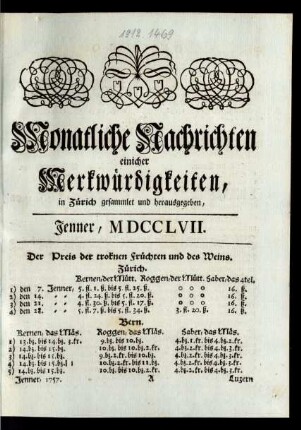 1812. 1469
Monatliche Nachrichten
einicher
Merkwürdigkeiten,
in Zürich gesammlet und herausgegeben,
Jenner, MDCCLVII.
Der Preis der troknen Früchten und des Weins.
Zürich.
Kernen/der Mütt. Roggen/der Mütt. Haber/das 4tel.
1) den 7. Jenner, 5. fl. 1. ß. bis 5. fl. 25. ß. o o o 16. ß.
2) den 14. 4. fl. 24. ß. bis 5. fl. 20. ß. o o o 16. ß.
3) den 21. 4. fl. 30. ß. bis 5. fl. 17. ß. o o o 16. ß.
4) den 28. 5. fl. 7. ß. bis 5. fl. 34. ß. 3. fl. 20. ß. 16. ß.
Bern.
Kernen, das Mäs. Roggen, das Mäs. Haber, das Mäs.
1) 13. bz. bis 14. bz. 3. kr. 9. bz. bis 10. bz. 4. bz. 1. kr. bis 4. bz. 3. kr.
2) 14. bz. bis 15. bz. 10. bz. bis 10. bz. 2. kr. 4. bz. bis 4. bz. 2. kr.
3) 14. bz. bis 15. bz. 9. bz. 2. kr. bis 10. bz. 4. bz. 1. kr. bis 4. bz. 2. kr.
4) 14. bz. bis 15. bz. 10. bz. bis 10. bz. 2. kr. 4. bz. 1. kr. bis 4. bz. 2. kr.
5) 14. bz. bis 15. bz. 10. bz. bis 10. bz. 2. kr. 4. bz. bis 4. bz. 2. kr.
Jenner 1757. A Luzern